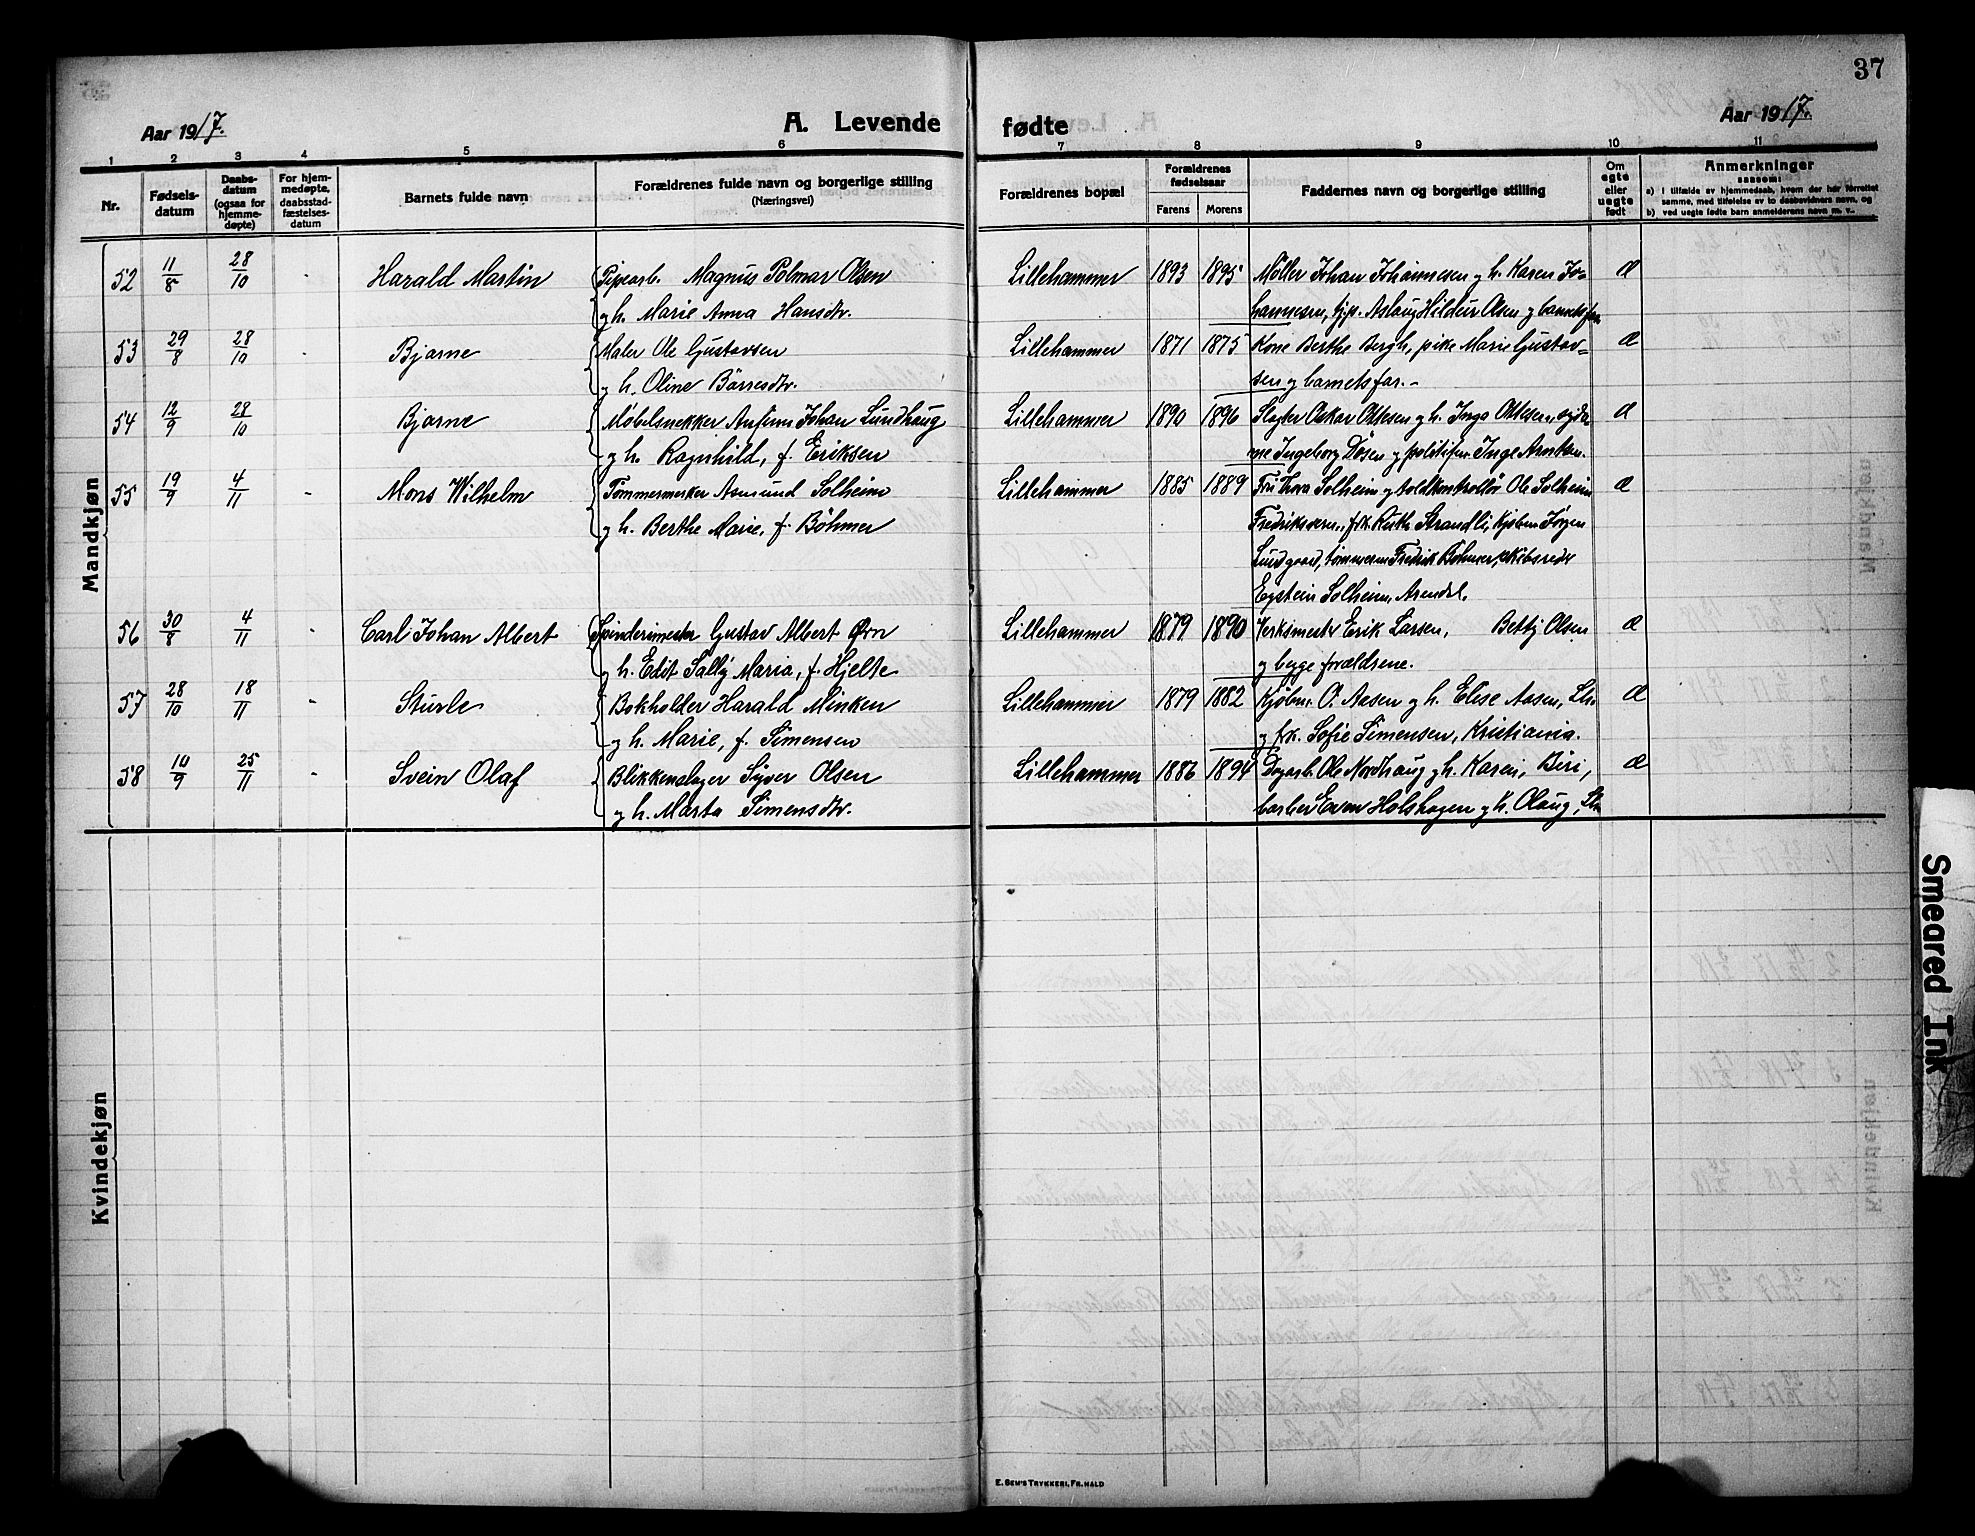 37
Aar 1917.
A. Levende fødte
Aar 1917.
1 2 3 4 5 6 7 8 9 10 11
Nr.
Fødsels-
datum
Daabs-
datum
(ogsaa for
hjemme-
døpte)
For hjem-
medøpte,
daabsstad-
fæstelses-
datum
Barnets fulde navn
Forældrenes fulde navn og borgerlige stilling
(Næringsvei)
Forældrenes bopæl
Forældrenes
fødselsaar
Farens
Morens
Faddernes navn og borgerlige stilling
Om
egte
eller
uegte
født
Anmerkninger
saasom:
a) i tilfælde av hjemmedaab, hvem der har forrettet
samme, med tilføielse av to daabsvidners navn, og
b) ved uegte fødte barn anmelderens navn m. v..
Mandkjøn
52 11/8 28/10 - Harald Martin Pipearb. Magnus Polmar Olsen Lillehammer 1893 1895 Møller Johan Johannesen g h. Karen Jo= Æ
g h. Marie Anna Hansdtr. hannesen, tjp. Aslaug Hildur Olsen g barnets far
53 29/8 28/10 - Bjarne Maler Ole Gustavsen Lillehammer 1871 1875 Kone Berthe Bergh, pike Marie Gustav= Æ
g h. Oline Börresdtr. sen g barnets far.-
54 12/9 28/10 Bjarne Møbelsnekker Johan Lundhaug Lillehammer 1890 1896 Slagter Oskar Ottesen g h. Inga Ottesen, Æ
g h. Ragnhild, f. Eriksen Ingeborg Døsen g Inge
55 19/9 4/11 - Mons Wilhelm Tømmermerker Asmund Solheim Lillehammer 1885 1889 Fru Thora Solheim g toldkontrollør Ole Solheim Æ
g h. Berthe Marie, f. Böhmer Fredriksværn, frk. Ruth Strandli, kjøbm. Jørgen
Lundgaard, tømmerm. Fredrik Böhmer, skibsreder
Eystein Solheim, Arendal.
56 30/8 4/11 - Carl Johan Albert Spinderimester Gustav Albert Örn Lillehammer 1879 1890 Verksmester Erik Larsen, Betty Olsen Æ
g h. Edit Sally Maria, f. Hjelte g begge forældrene.
57 28/10 18/11 - Sturle Bokholder Harald Minken Lillehammer 1879 1882 Kjøbm. O. Aasen g h. Elise Aasen, Lh. Æ
g h. Marie, f. Simensen g frk. Sofie Simensen, Kristiania.
58 10/9 25/11 - Svein Olaf Blikkenslager Syver Olsen Lillehammer 1886 1894 Dagarb. Ole Nordhaug g h. Karen, Biri, Æ
g h. Marta Simensdtr. barber Even Holshagen g h. Olaug, Lh
Kvindekjøn
E. Sem's Trykkeri, Fr.hald
Smeared Ink